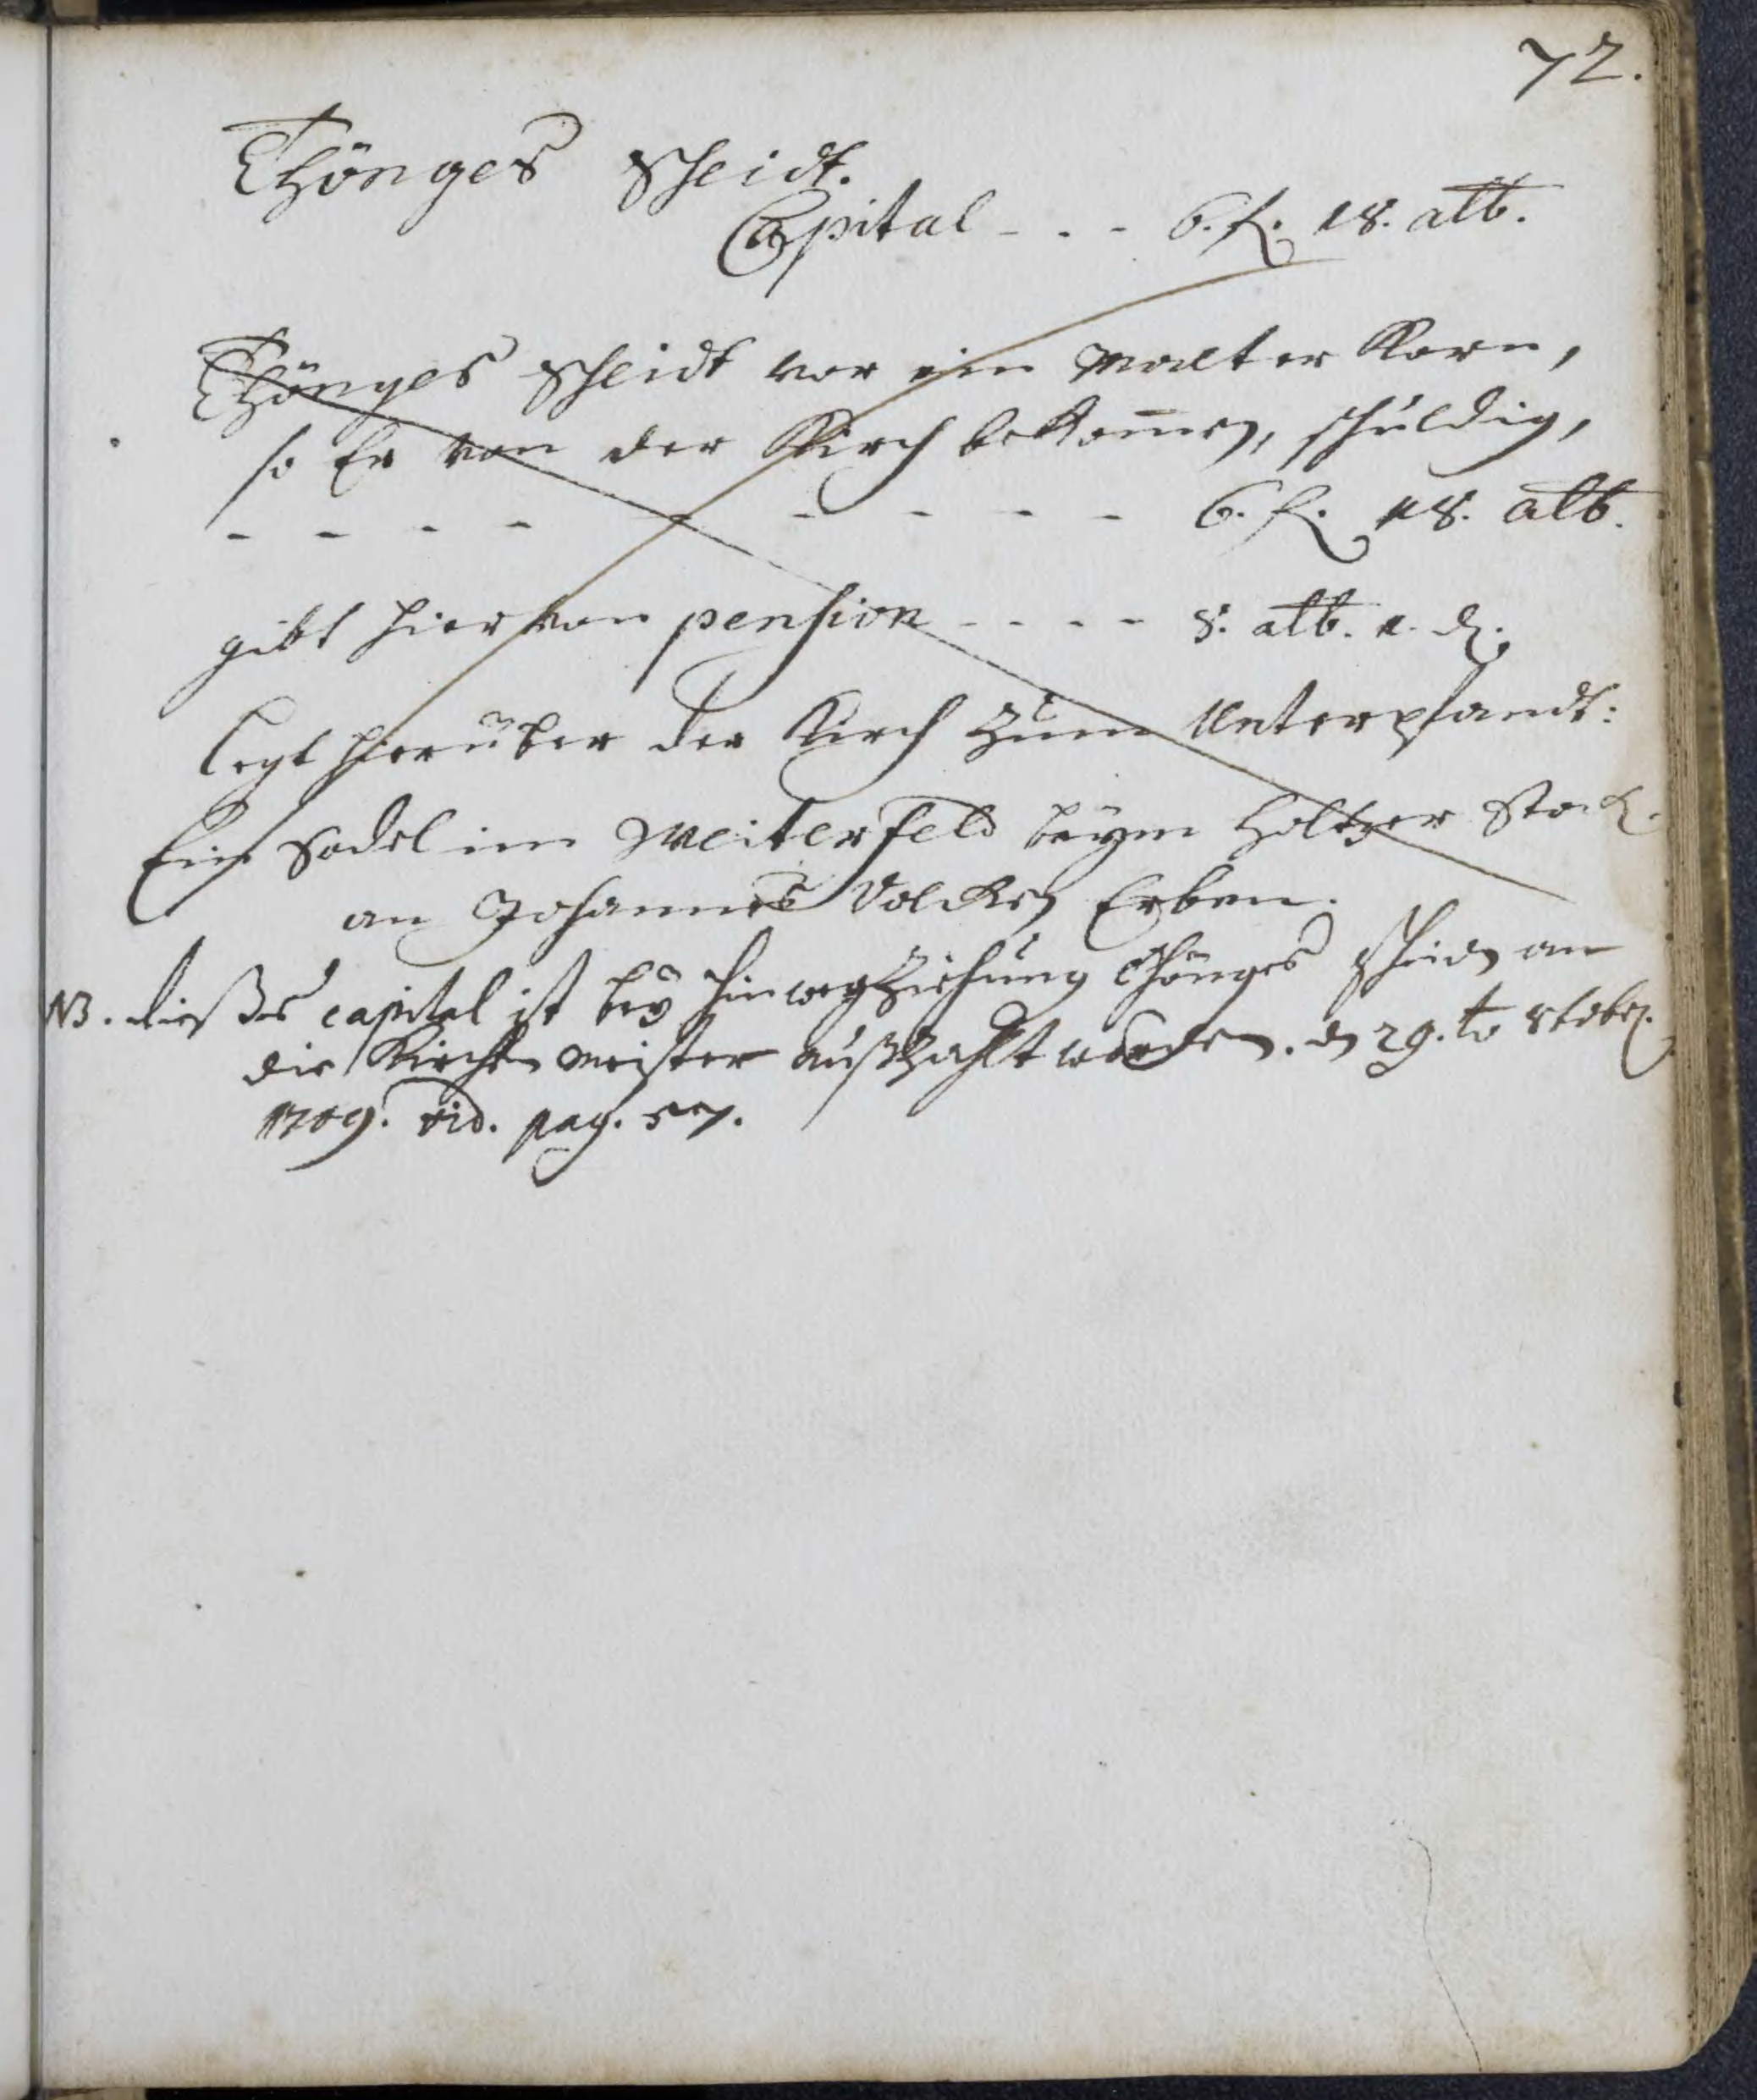 72.
Thönges Scheidt.
Capital - - - 6. fl. 18. alb.
Thönges Scheidt vor ein Malter Korn,
so Er von der Kirch bekom̄en, schuldig,
- - - - - - - - - 6. fl. 18. alb.
gibt hiervon pension - - - - 8. alb. 1. d.
legt hierüber der Kirch zum Unterpfandt:
Ein Sodel im Weiterfeld beym Holtzer Stock.
an Johannes Volcken Erben.
NB. dießes capital ist bey hinwegziehung Thönges Scheiden an
die Kirchen meister außzahlt worden. den 29. to 8tobr.
1709. vid. pag. 57.